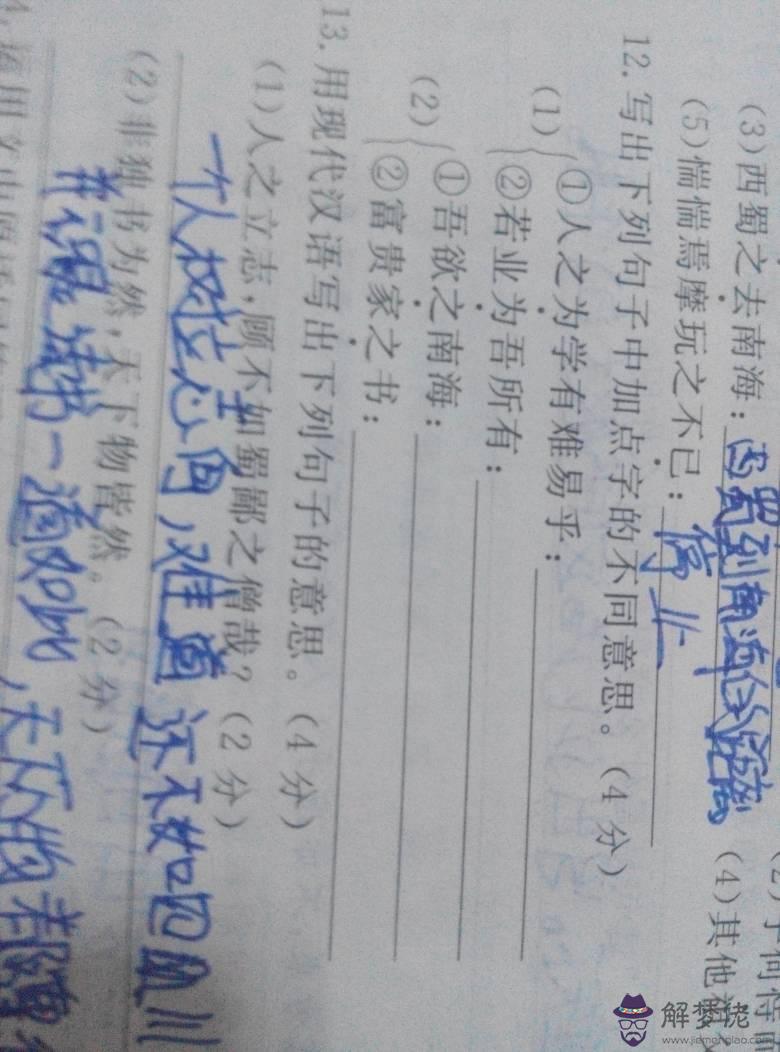 (2)子何恃而
(3)西蜀之去南海：西蜀到南海的距离
(4)其他
(5)惴惴焉摩玩之不已：停止
12.写出下列句子中加点字的不同意思。(4分)
(1)①人之为学有难易乎：
②若业为吾所有：
(2)①吾欲之南海：
②富贵家之书：
13.用现代汉语写出下列句子的意思。(4分)
(1)人之立志，顾不如蜀鄙之僧哉？(2分)
一个人树立志向，难道还不如四川
(2)非独书为然，天下物皆然。(2分)
读书一道如此，天下万物都
解梦佬
www.jiemenglao.com